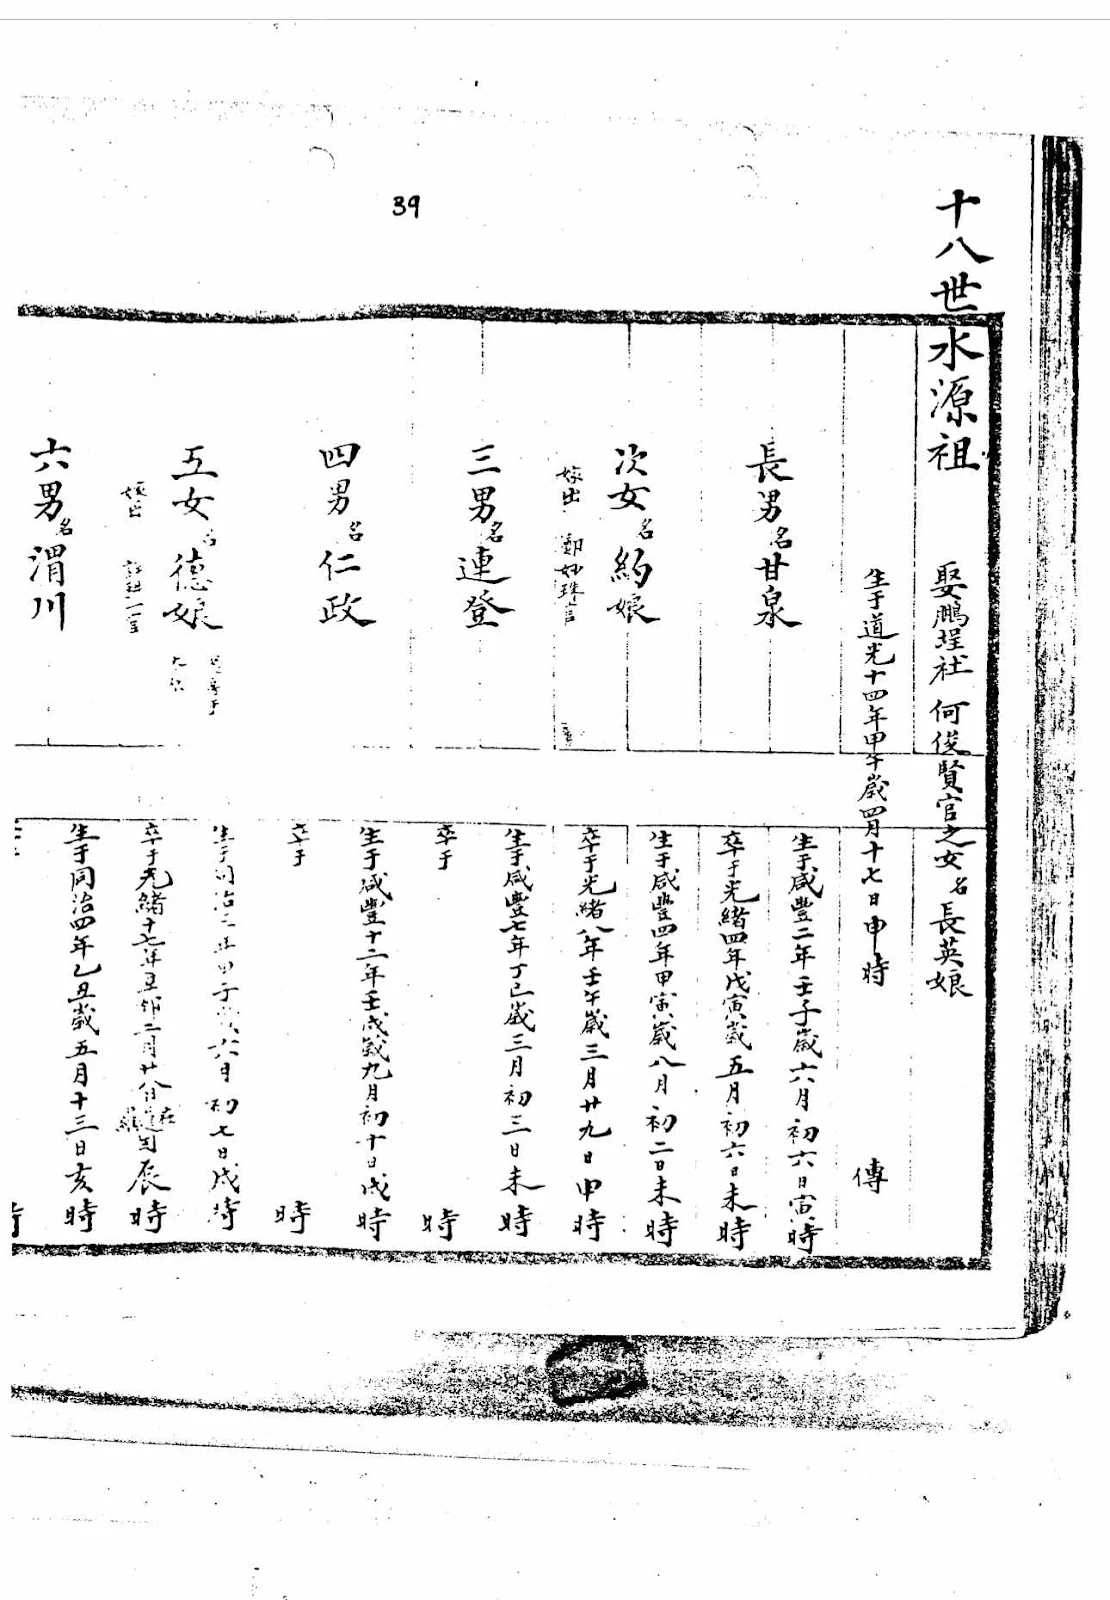 39
十八世水源祖
娶鵬埕社 何俊賢官之女名長英娘
生于道光十四年甲午歲四月十七日申時 傳
長男名甘泉
生于咸豐二年壬子歲六月初六日寅時
卒于光緒四年戊寅歲五月初六日未時
次女名約娘
嫁出 鄭妙珠官
生于咸豐四年甲寅歲八月初二日未時
卒于光緒八年壬午歲三月廿九日申時
三男名連登
生于咸豐七年丁巳歲三月初三日未時
卒于 時
四男名仁政
生于咸豐十二年壬戌歲九月初十日戌時
卒于 時
五女名德娘
嫁出
生于同治三年甲子歲六月初七日戌時
卒于光緒十七年辛卯二月廿八日 辰時
六男名渭川
生于同治四年乙丑歲五月十三日亥時
時